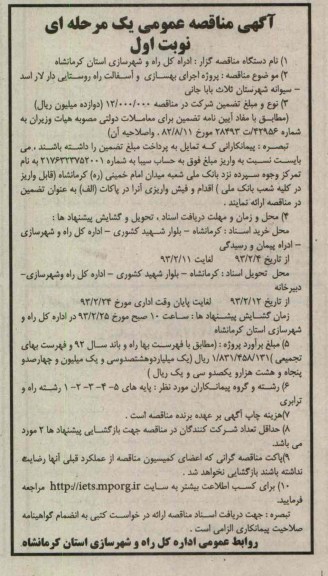 آگهی مناقصه عمومی یک مرحله ای
نوبت اول
۱) نام دستگاه مناقصه گزار : ادراه کل راه و شهرسازی استان کرمانشاه
۲) مو ضوع مناقصه : پروژه اجرای بهسازی و آسفالت راه روستایی دار لار اسد
– سیوانه شهرستان ثلاث بابا جانی
۳) نوع و مبلغ تضمین شرکت در مناقصه ۱۲/۰۰۰/۰۰۰ (دوازده میلیون ریال)
(مطابق با مفاد آیین نامه تضمین برای معاملات دولتی مصوبه هیات وزیران به
شماره ۴۲۹۵۶/ت ۲۸۴۹۳ مورخ ۸۲/۸/۱۱ . واصلاحیه آن)
تبصره : پیمانکارانی که تمایل به پرداخت مبلغ تضمین را داشته باشند ، می
بایست نسبت به واریز مبلغ فوق به حساب سیبا به شماره ۲۱۷۶۳۲۳۷۵۲۰۰۱ به نام
تمرکز وجوه سپرده نزد بانک ملی شعبه میدان امام خمینی (ره) کرمانشاه (قابل واریز
در کلیه شعب بانک ملی ) اقدام و فیش واریزی آنرا در پاکات (الف) به عنوان تضمین
در مناقصه ارائه نمایند .
۴) محل و زمان و مهلت دریافت اسناد ، تحویل و گشایش پیشنهاد ها :
محل خرید اسناد : کرمانشاه – بلوار شهید کشوری – اداره کل راه و شهرسازی
– ادراه پیمان و رسیدگی
از تاریخ ۹۳/۲/۴ لغایت ۹۳/۲/۱۱
محل تحویل اسناد : کرمانشاه – بلوار شهید کشوری – اداره کل راه وشهرسازی-
دبیرخانه
از تاریخ ۹۳/۲/۱۲ لغایت پایان وقت اداری مورخ ۹۳/۲/۲۴
زمان گشایش پیشنهاد ها : ساعت ۱۰ صبح مورخ ۹۳/۲/۲۵ در اداره کل راه و
شهرسازی استان کرمانشاه
۵) مبلغ برآورد پروژه : (مطابق با فهرست بها راه و باند سال ۹۲ و فهرست بهای
تجمیعی )۱/۸۳۱/۴۵۸/۱۳۱ ریال (یک میلیاردوهشتصدوسی و یک میلیون و چهارصدو
پنجاه و هشت هزارو یکصدو سی و یک ریال )
۶) رشته و گروه پیمانکاران مورد نظر : پایه های ۵- ۴- ۳- ۲- ۱ رشته راه و
ترابری
۷)هزینه چاپ آگهی بر عهده برنده مناقصه است .
۸) حداقل تعداد شرکت کنندگان در مناقصه جهت بازگشایی پیشنهاد ها ۲ مورد
می باشد.
۹)پاکت مناقصه گرانی که اعضای کمیسیون مناقصه از عملکرد قبلی آنها رضایت
نداشته باشند بازگشایی نخواهد شد .
۱۰) برای کسب اطلاعت بیشتر به سایت http://iets.mporg.ir مراجعه
فرمایید.
تبصره : جهت دریافت اسناد مناقصه ارائه در خواست کتبی به انضمام گواهینامه
صلاحیت پیمانکاری الزامی است .
روابط عمومی اداره کل راه و شهرسازی استان کرمانشاه